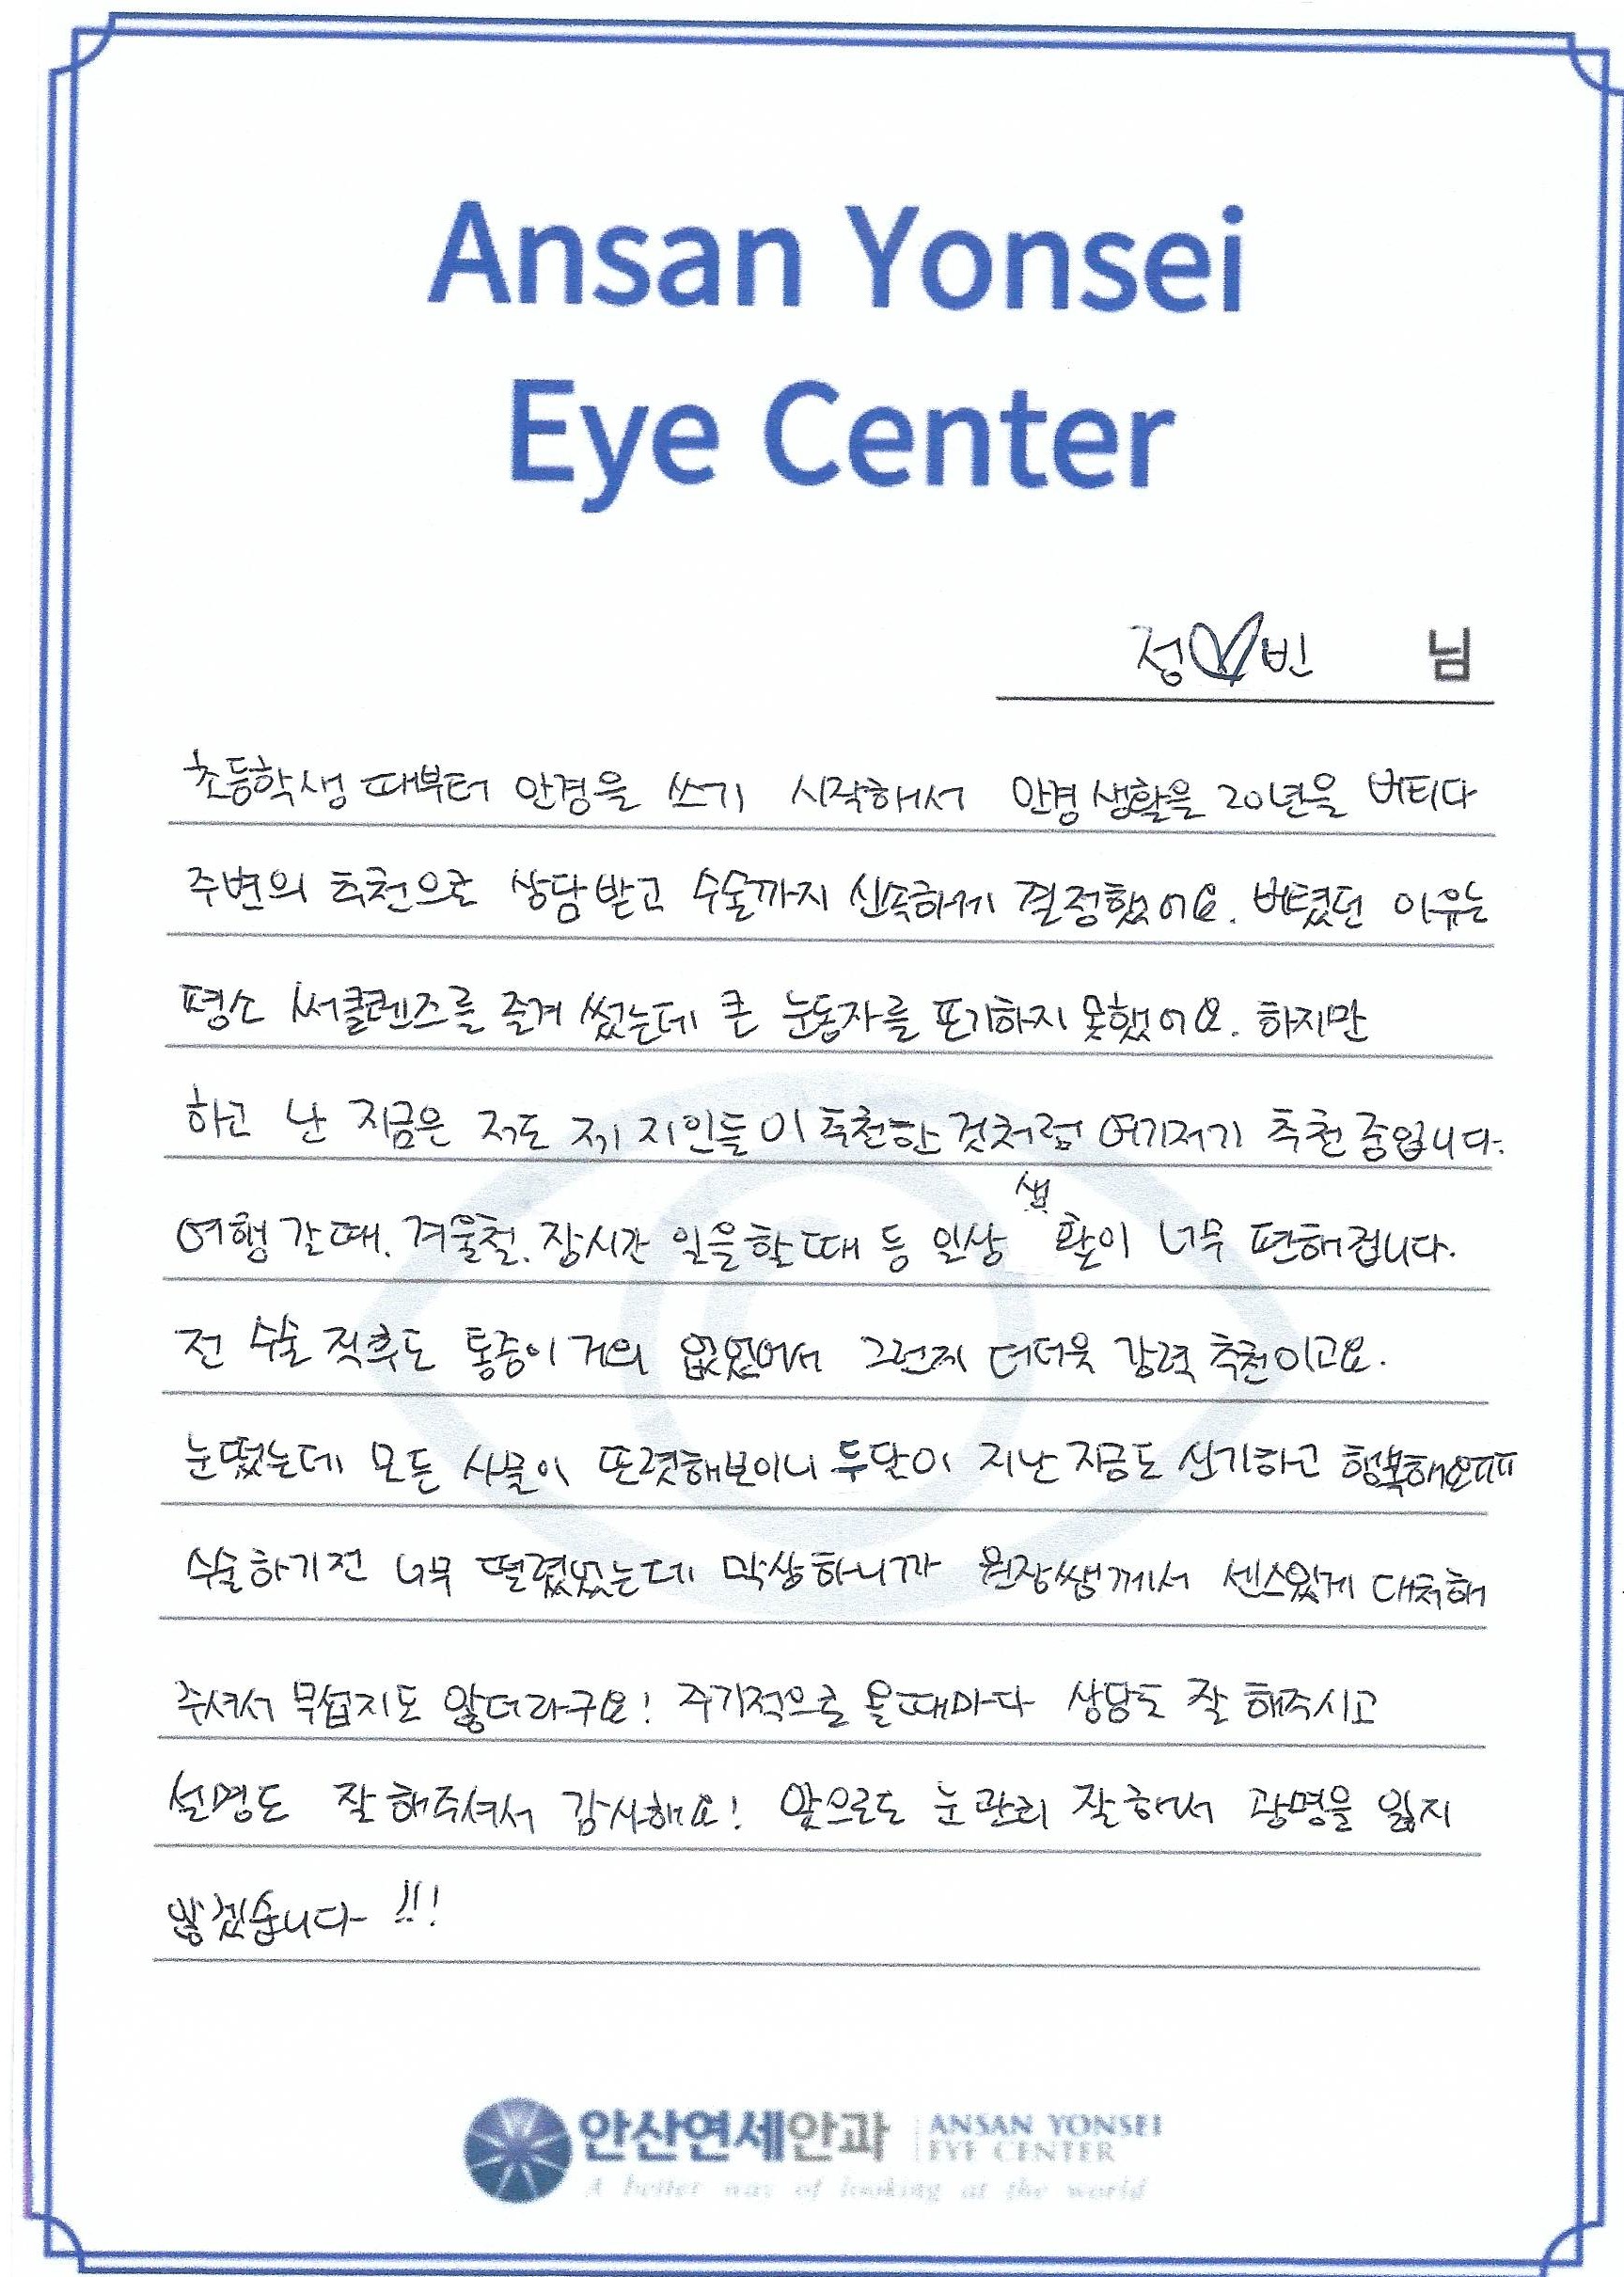 Ansan Yonsei
Eye Center
정♡빈 님
초등학생 때부터 안경을 쓰기 시작해서 안경생활을 20년을 버티다
주변의 추천으로 상담받고 수술까지 신속하게 결정했어요. 버텼던 이유는
평소 써클렌즈를 즐겨 썼는데 큰 눈동자를 포기하지 못했어요. 하지만
하고 난 지금은 저도 제 지인들이 추천한 것처럼 여기저기 추천중입니다.
여행 갈 때. 겨울철. 장시간 일을할때 등 일상생활이 너무 편해집니다.
전 수술 직후도 통증이 거의 없었어서 그런지 더더욱 강력 추천이고요.
눈떴는데 모든 사물이 또렷해보이니 두달이 지난 지금도 신기하고 행복해요ㅠㅠ
수술하기전 너무 떨렸었는데 막상하니까 원장쌤께서 센스있게 대처해
주셔서 무섭지도 않더라구요! 주기적으로 올때마다 상담도 잘 해주시고
설명도 잘해주셔서 감사해요! 앞으로도 눈관리 잘해서 광명을 잃지
않겠습니다 !!!
안산연세안과 ANSAN YONSEI
EYE CENTER
A better way of looking at the world